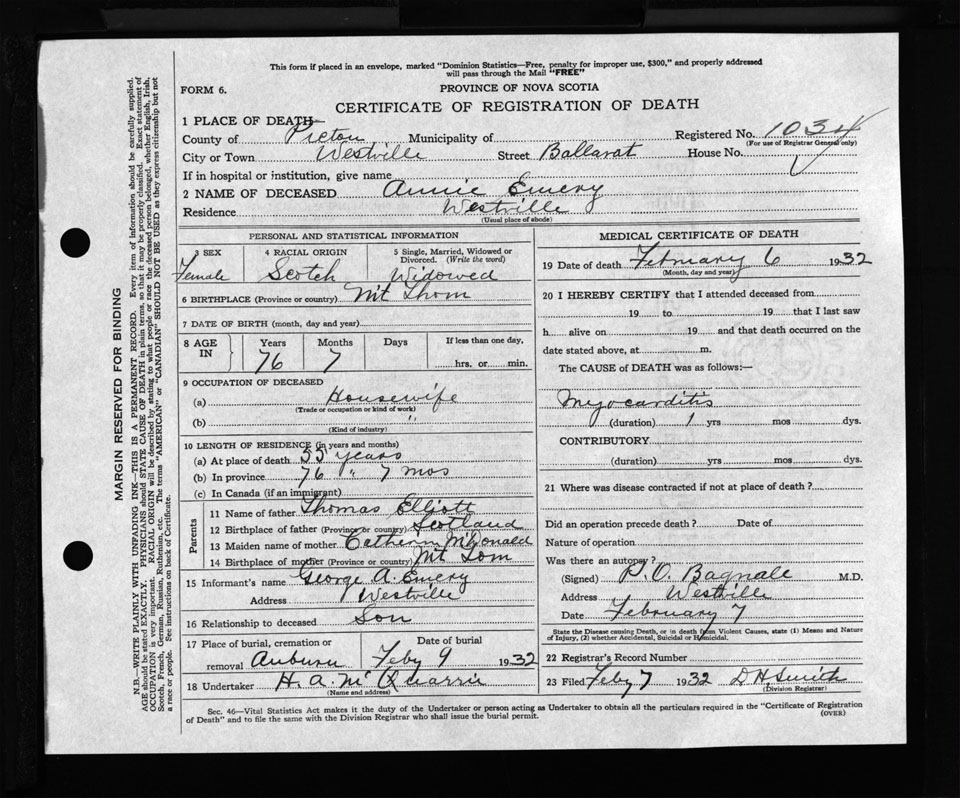 This form if placed in an envelope, marked "Dominion Statistics—Free, penalty for improper use, $300," and properly addressed
will pass through the Mail "FREE"
FORM 6.
PROVINCE OF NOVA SCOTIA
CERTIFICATE OF REGISTRATION OF DEATH
1 PLACE OF DEATH—
County of Pictou Municipality of Registered No. 1034
(For use of Registrar General only)
City or Town Westville Street Ballarat House No.
If in hospital or institution, give name
2 NAME OF DECEASED Annie Emery
Residence Westville
(Usual place of abode)
PERSONAL AND STATISTICAL INFORMATION
3 SEX 4 RACIAL ORIGIN 5 Single, Married, Widowed or Divorced. (Write the word)
Female Scotch Widowed
6 BIRTHPLACE (Province or country) Mt Thom
7 DATE OF BIRTH (month, day and year)
8 AGE IN Years Months Days If less than one day,
76 7 hrs. or min.
9 OCCUPATION OF DECEASED
(a) Housewife
(Trade or occupation or kind of work)
(b) "
(Kind of industry)
10 LENGTH OF RESIDENCE (in years and months)
(a) At place of death 55 years
(b) In province 76 " 7 mos
(c) In Canada (if an immigrant)
Parents
11 Name of father Thomas Elliott
12 Birthplace of father (Province or country) Scotland
13 Maiden name of mother Catherin McDonald
14 Birthplace of mother (Province or country) Mt Tom
15 Informant's name George A. Emery
Address Westville
16 Relationship to deceased Son
17 Place of burial, cremation or removal Auburn
Date of burial Feby 9 1932
18 Undertaker H. A. McQuarrie
(Name and address)
MEDICAL CERTIFICATE OF DEATH
19 Date of death February 6 1932
(Month, day and year)
20 I HEREBY CERTIFY that I attended deceased from
19 to 19 that I last saw
h alive on 19 and that death occurred on the
date stated above, at m.
The CAUSE of DEATH was as follows:—
Myocarditis
(duration) 1 yrs mos dys.
CONTRIBUTORY
(duration) yrs mos dys.
21 Where was disease contracted if not at place of death?
Did an operation precede death? Date of
Nature of operation
Was there an autopsy?
(Signed) P. O. Bagnall M.D.
Address Westville
Date February 7
State the Disease causing Death, or in death from Violent Causes, state (1) Means and Nature
of Injury, (2) whether Accidental, Suicidal or Homicidal.
22 Registrar's Record Number
23 Filed Feby 7 1932 D H Smith
(Division Registrar)
Sec. 46—Vital Statistics Act makes it the duty of the Undertaker or person acting as Undertaker to obtain all the particulars required in the "Certificate of Registration
of Death" and to file the same with the Division Registrar who shall issue the burial permit.
(OVER)
MARGIN RESERVED FOR BINDING
N.B.—WRITE PLAINLY WITH UNFADING INK—THIS IS A PERMANENT RECORD. Every item of information should be carefully supplied.
AGE should be stated EXACTLY. PHYSICIANS should STATE CAUSE OF DEATH in plain terms, so that it may be properly classified. Exact statement of
OCCUPATION is very important. RACIAL ORIGIN will be described by stating to what people or race the deceased person belonged, whether English, Irish,
Scotch, French, German, Russian, Ruthenian, etc. The terms "AMERICAN" or "CANADIAN" SHOULD NOT BE USED as they express citizenship but not
a race or people. See instructions on back of Certificate.